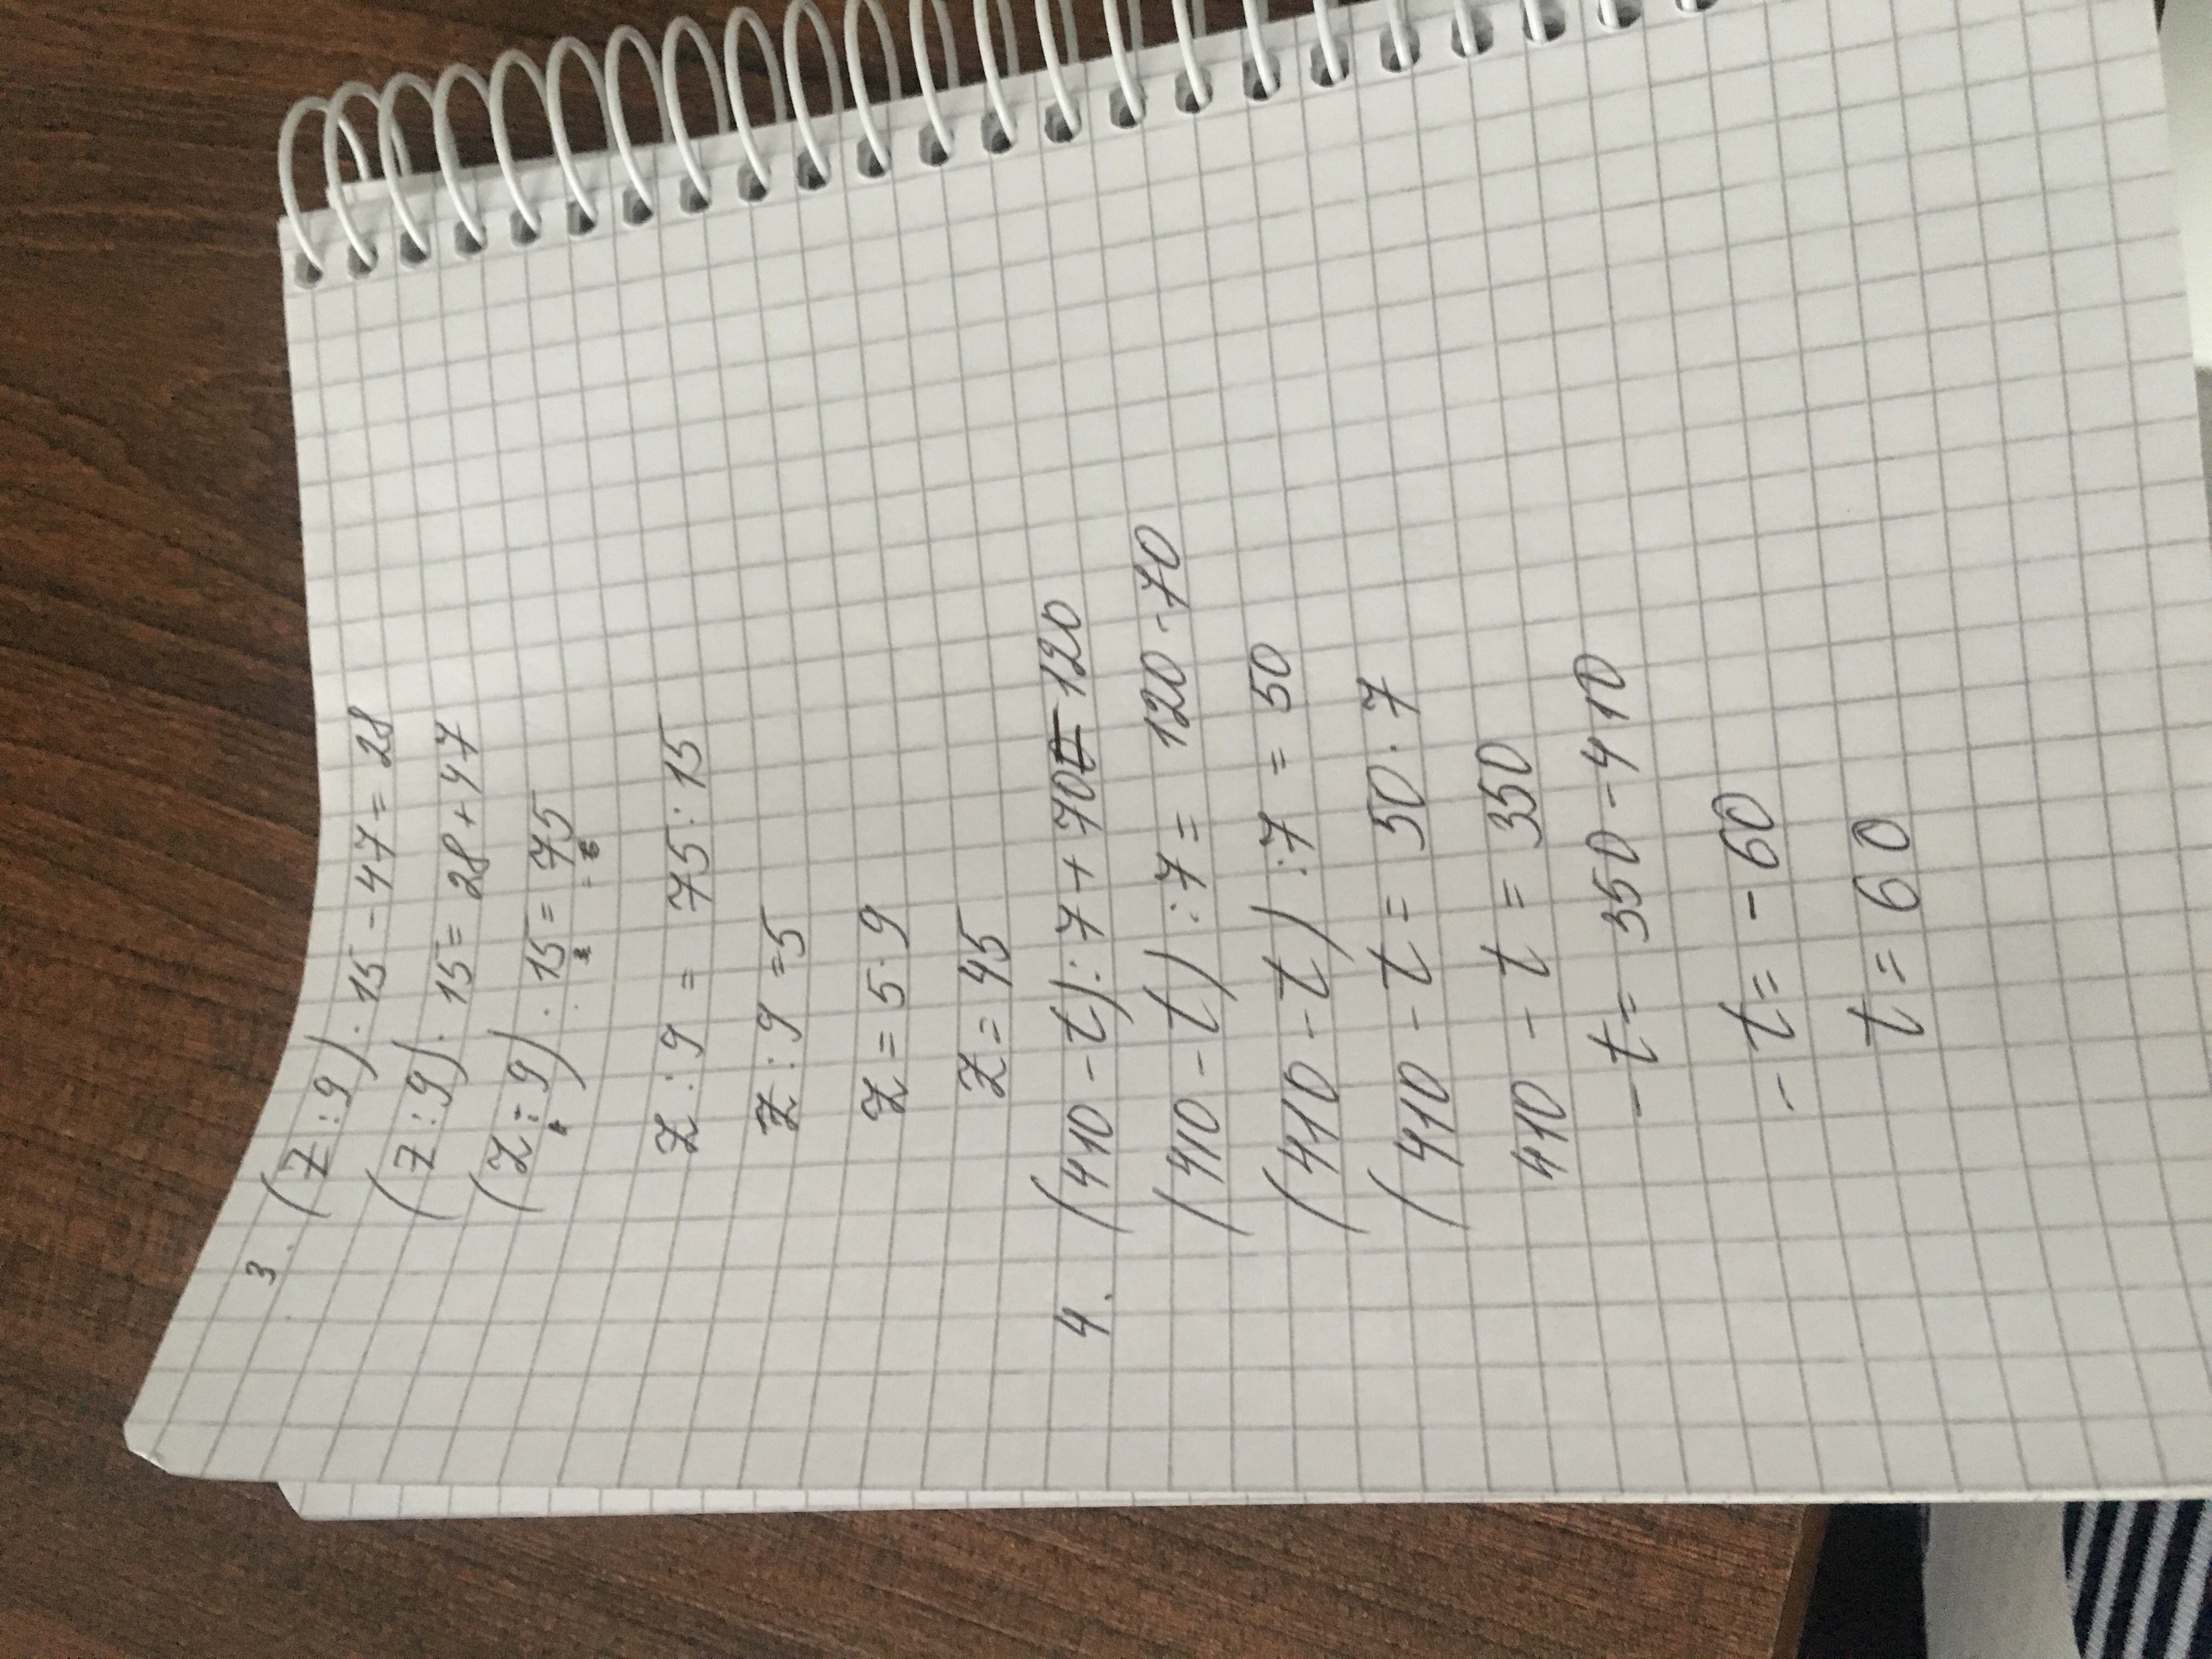 3. (z:9)·15-47=28
(z:9)·15=28+47
(z:9)·15=75
z:9=75:15
z:9=5
z=5·9
z=45
4. (410-t):7+70=120
(410-t):7=120-70
(410-t):7=50
(410-t=50·7
410-t=350
-t=350-410
-t=-60
t=60